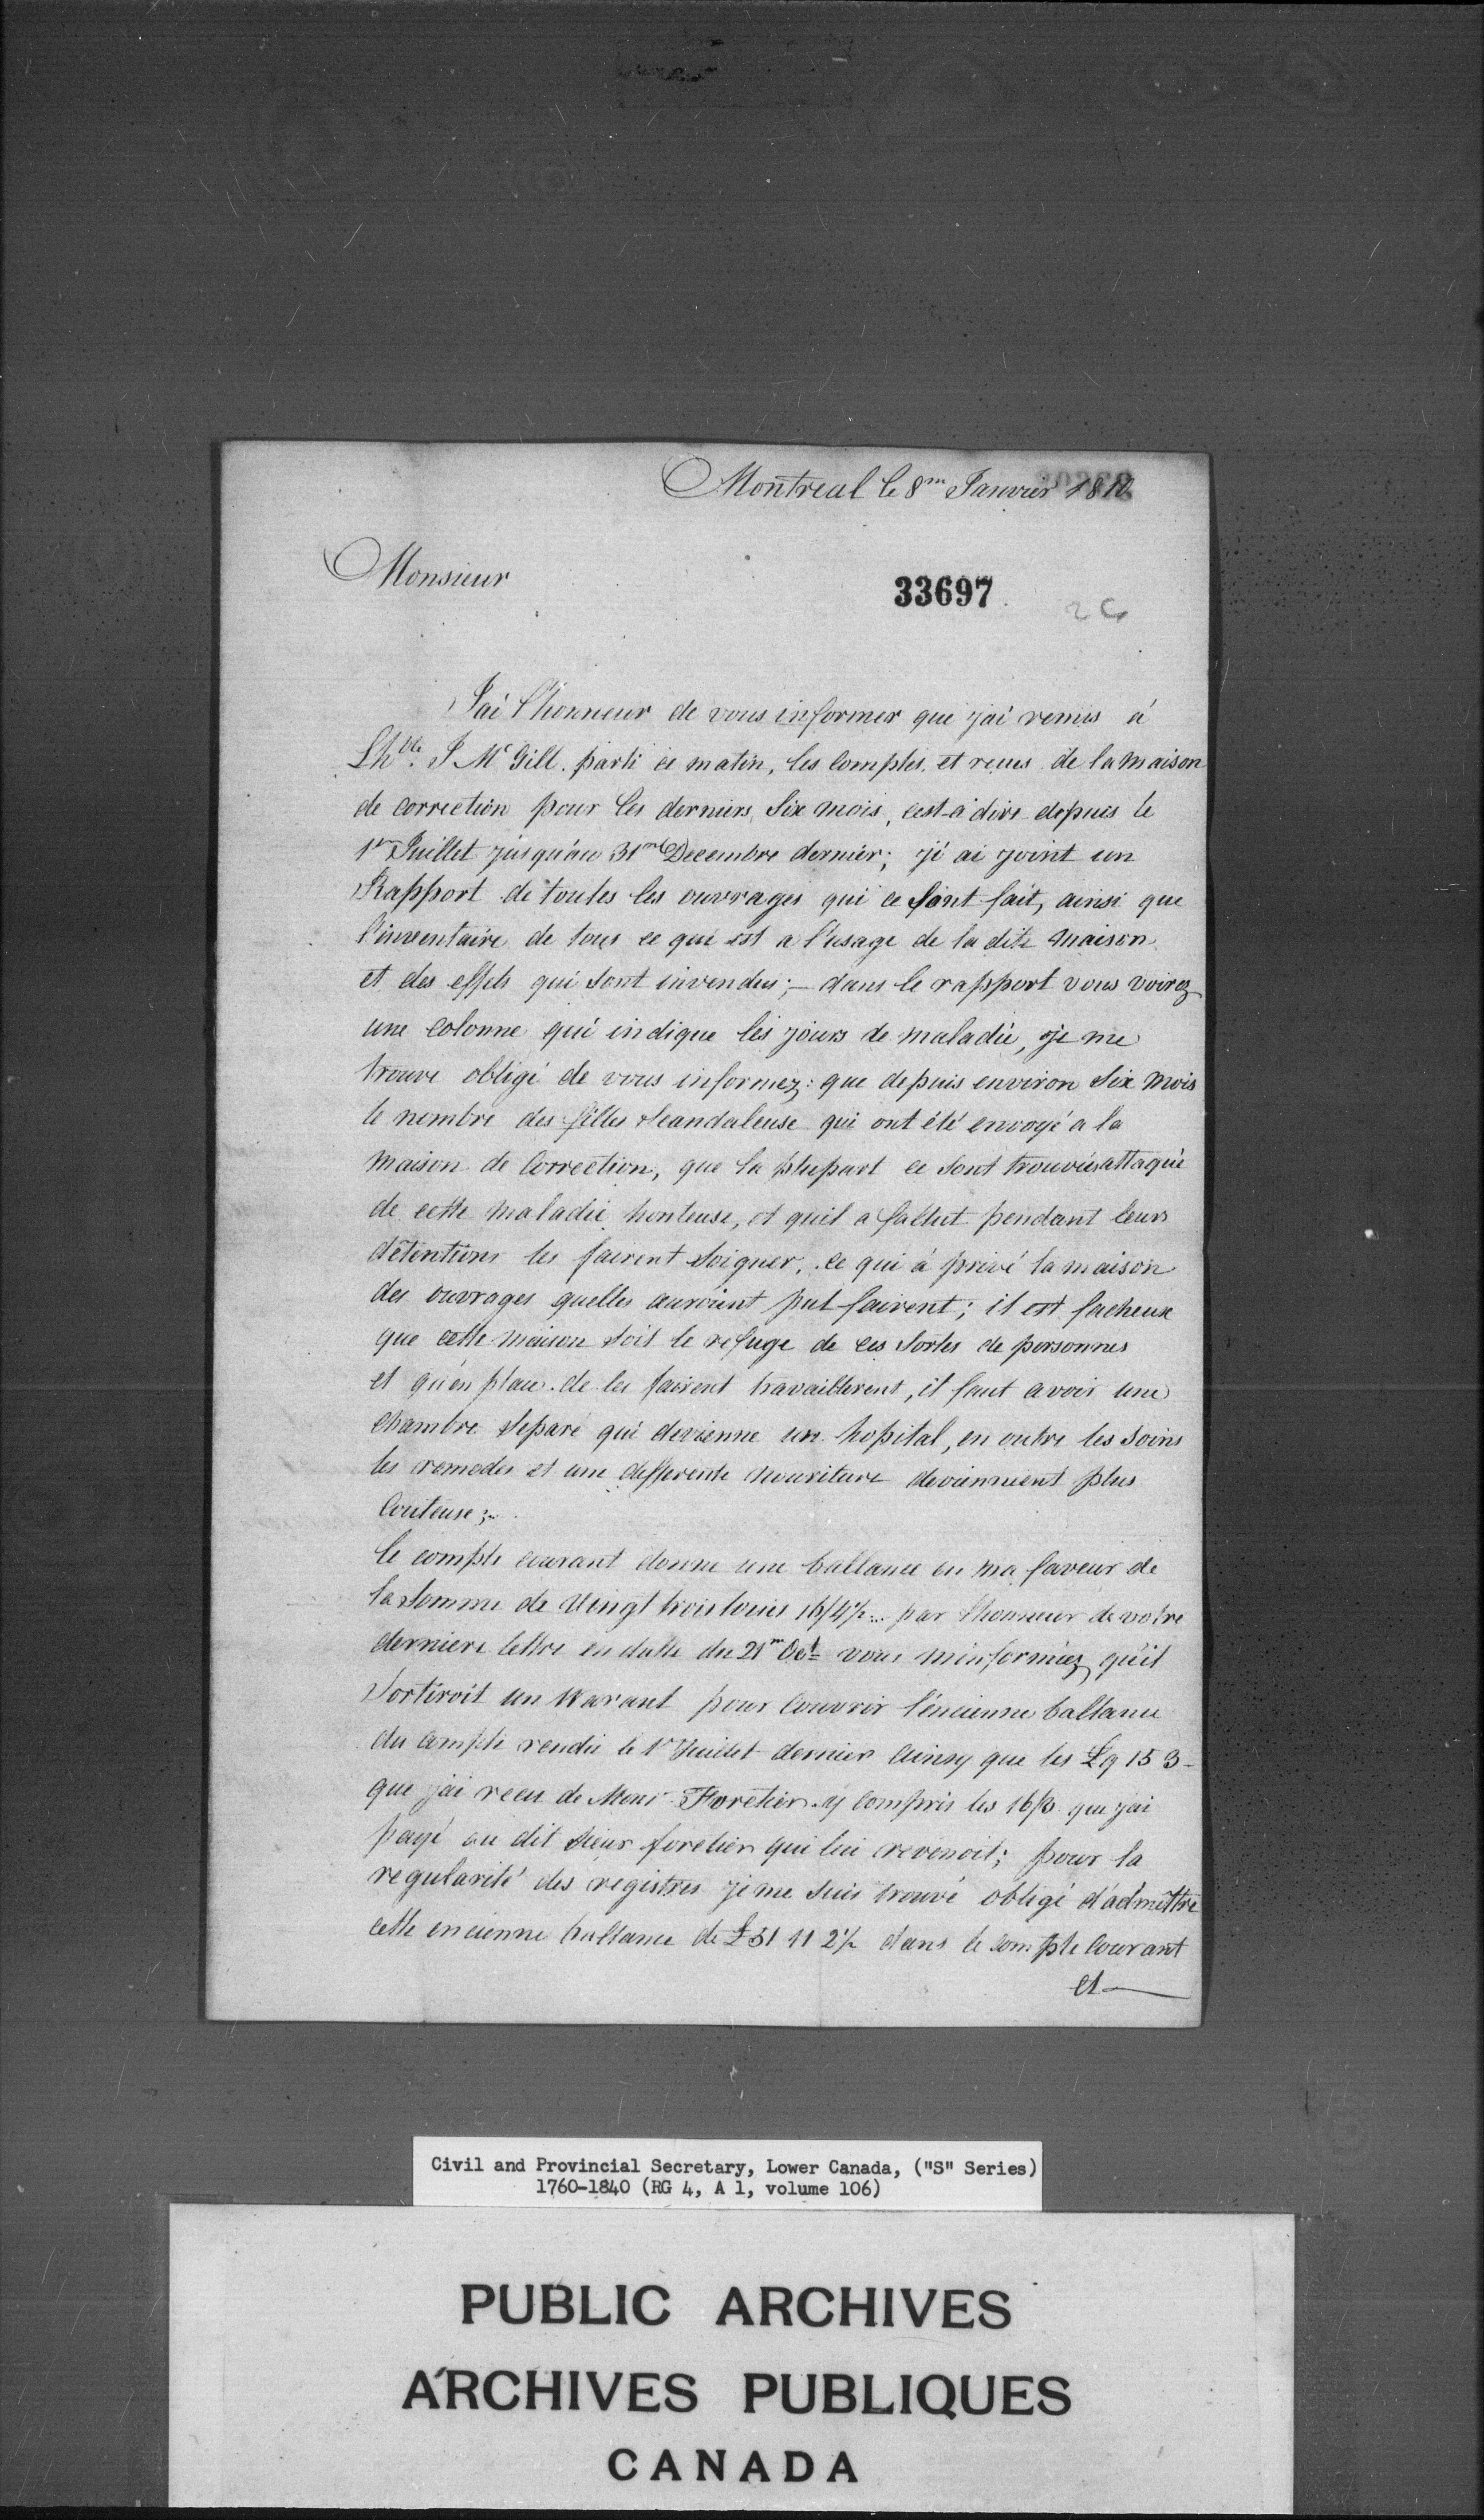 Montreal le 8me Janvier 1810
Monsieur
33697
J'ai l'honneur de vous informer que j'ai remis á
L'hble. J McGill. parti ce matin, les Comptes et reçus de la maison
de correction pour les derniers Six mois, cest-à dire depuis le
1er Juillet jusqu'au 31me Decembre dernier; j'é ai joint un
Rapport de toutes les ouvrages qui ce sont fait, ainsi que
l'inventaire de tous ce qui est a l'usage de la dite maison
et des effets qui sont invendus;— dans le rapport vous voirez
une colonne qui indique les jours de maladie, je me
trouve obligé de vous informez: que depuis environ Six mois
le nombre des filles Scandaleuse qui ont été envoyé a la
maison de Correction, que la plupart ce sont trouvées attaqué
de cette maladie honteuse, et quil a fallut pendant leurs
détentions les fairent soigner, ce qui á privé la maison
des ouvrages quelles auroient put fairent; il est facheux
que cette maison soit le refuge de ces sortes de personnes
et qu'en place de les fairent travaillerent, il faut avoir une
chambre separé qui devienne un hopital, en outre les soins
les remedes et une differente nouriture deviennent plus
Couteuse;
le compte courant donne une ballance en ma faveur de
la somme de Vingt trois louis 16/4½ par l'honneur de votre
derniere lettre en datte du 21me Oct vous m'informiez qu'il
Sortiroit un Warant pour Couvrir l'encienne ballance
du compte rendu le 1er Juillet dernier ainsy que les £9 15 3
que j'ai recu de Monsr Foretier y Compris les 16/3 que j'ai
payé au dit Sieur foretier qui lui revenoit; pour la
regularité des registres je me suis trouvé obligé d'admettre
cette encienne ballance de £31 11 2½ dans le Compte Courant
et
Civil and Provincial Secretary, Lower Canada, ("S" Series)
1760-1840 (RG 4, A 1, volume 106)
PUBLIC ARCHIVES
ARCHIVES PUBLIQUES
CANADA